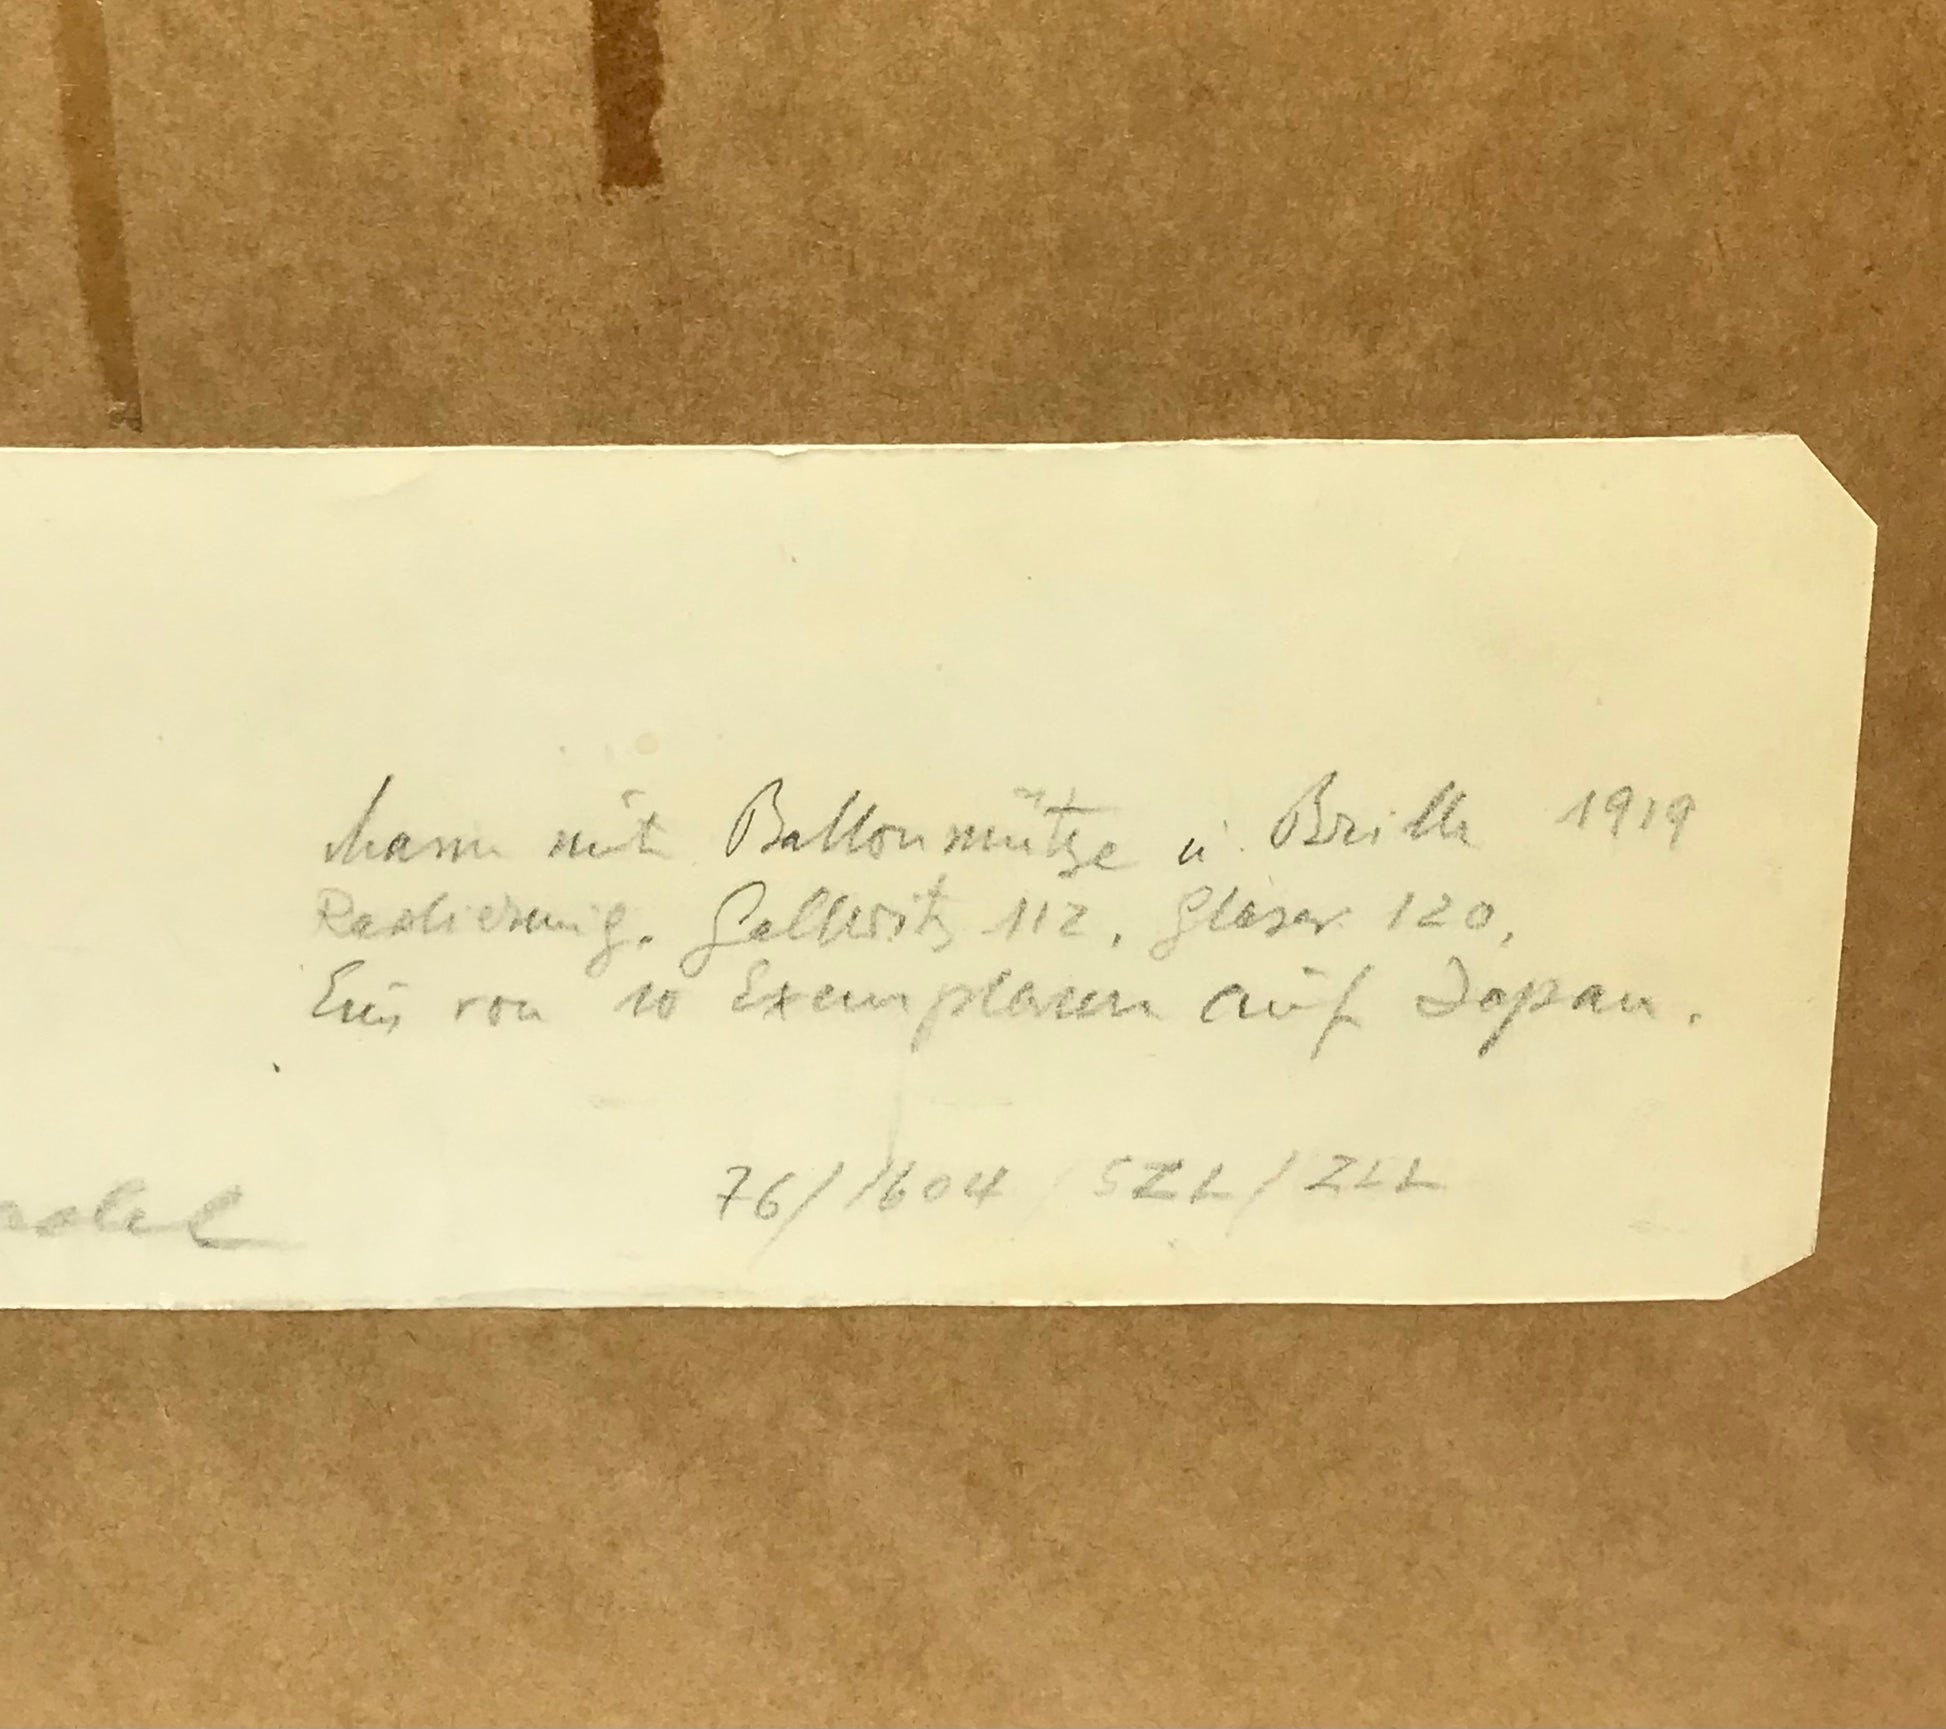 Mann mit Ballonmütze u. Brille 1919
Radierung. Gallwitz 112, Glaser 120,
Eins von 10 Exemplaren auf Japan.
76/1604 / SZL / ZLL